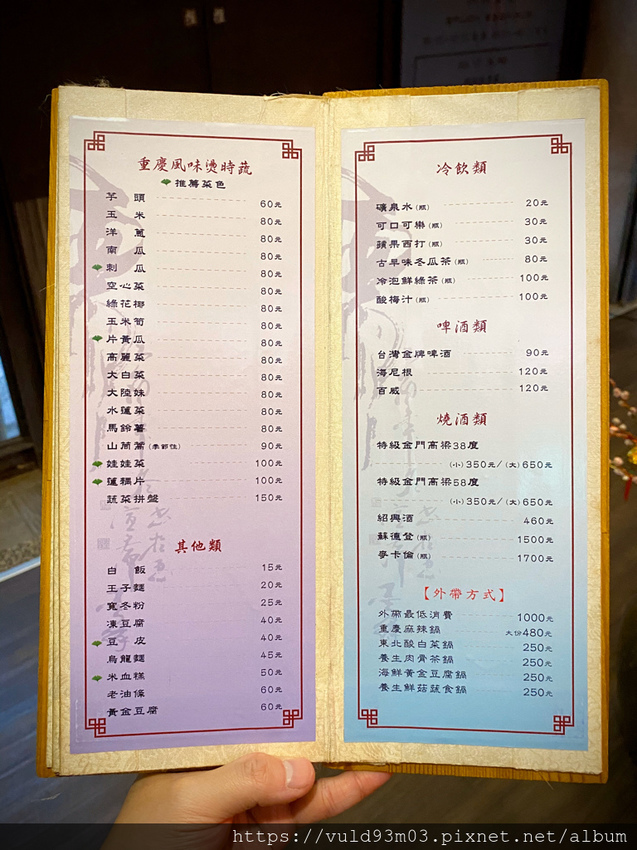 重慶風味燙時蔬
推薦菜色
芋頭 60元
玉米 80元
洋蔥 80元
南瓜 80元
刺瓜 80元
空心菜 80元
綠花椰 80元
玉米筍 80元
片黃瓜 80元
高麗菜 80元
大白菜 80元
大陸妹 80元
水蓮菜 80元
馬鈴薯 80元
山茼蒿(季節性) 90元
娃娃菜 100元
蓮藕片 100元
蔬菜拼盤 150元
其他類
白飯 15元
王子麵 20元
寬冬粉 25元
凍豆腐 40元
豆皮 40元
烏龍麵 45元
米血糕 50元
老油條 60元
黃金豆腐 60元
冷飲類
礦泉水(瓶) 20元
可口可樂(瓶) 30元
蘋果西打(瓶) 30元
古早味冬瓜茶(瓶) 80元
冷泡鮮綠茶(瓶) 100元
酸梅汁(瓶) 100元
啤酒類
台灣金牌啤酒 90元
海尼根 120元
百威 120元
燒酒類
特級金門高粱38度
(小)350元/(大)650元
特級金門高粱58度
(小)350元/(大)650元
紹興酒 460元
蘇格登(瓶) 1500元
麥卡倫(瓶) 1700元
【外帶方式】
外帶最低消費 1000元
重慶麻辣鍋 大份480元
東北酸白菜鍋 250元
養生肉骨茶鍋 250元
海鮮黃金豆腐鍋 250元
養生鮮菇蔬食鍋 250元
https://vuld93m03.pixnet.net/album